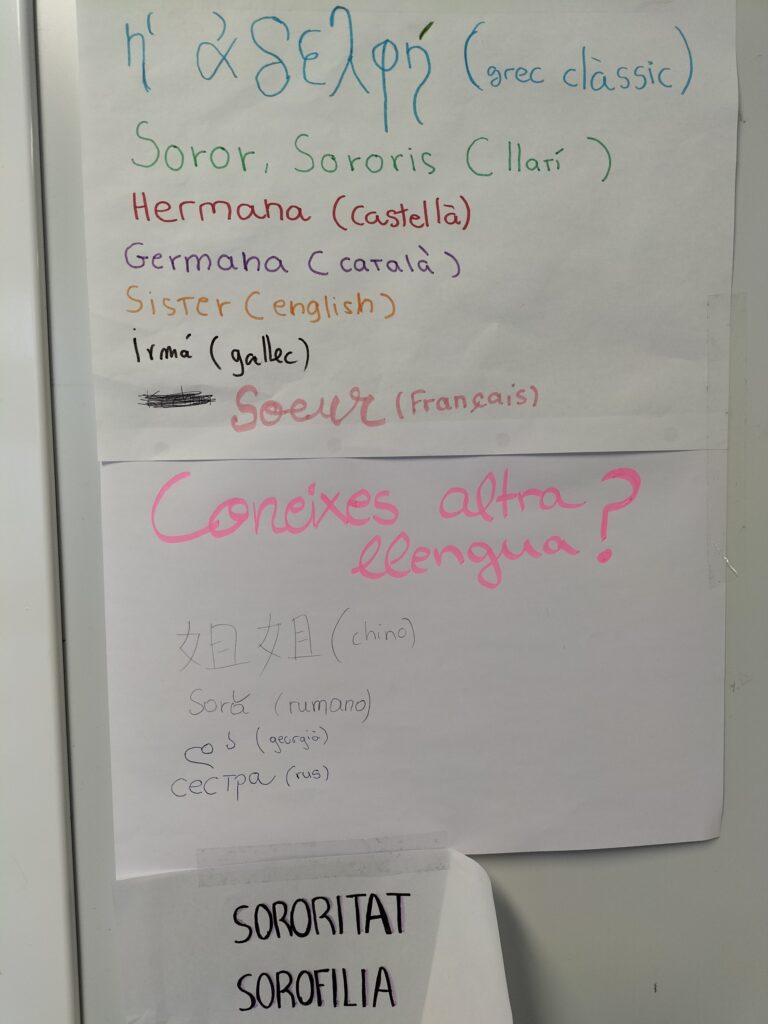 ἡ ἀδελφή (grec clàssic)
Soror, Sororis (llatí)
Hermana (castellà)
Germana (català)
Sister (english)
irmá (gallec)
Soeur (Français)
Coneixes altra
llengua?
姐姐 (chino)
Soră (rumano)
(georgià)
сестра (rus)
SORORITAT
SOROFILIA